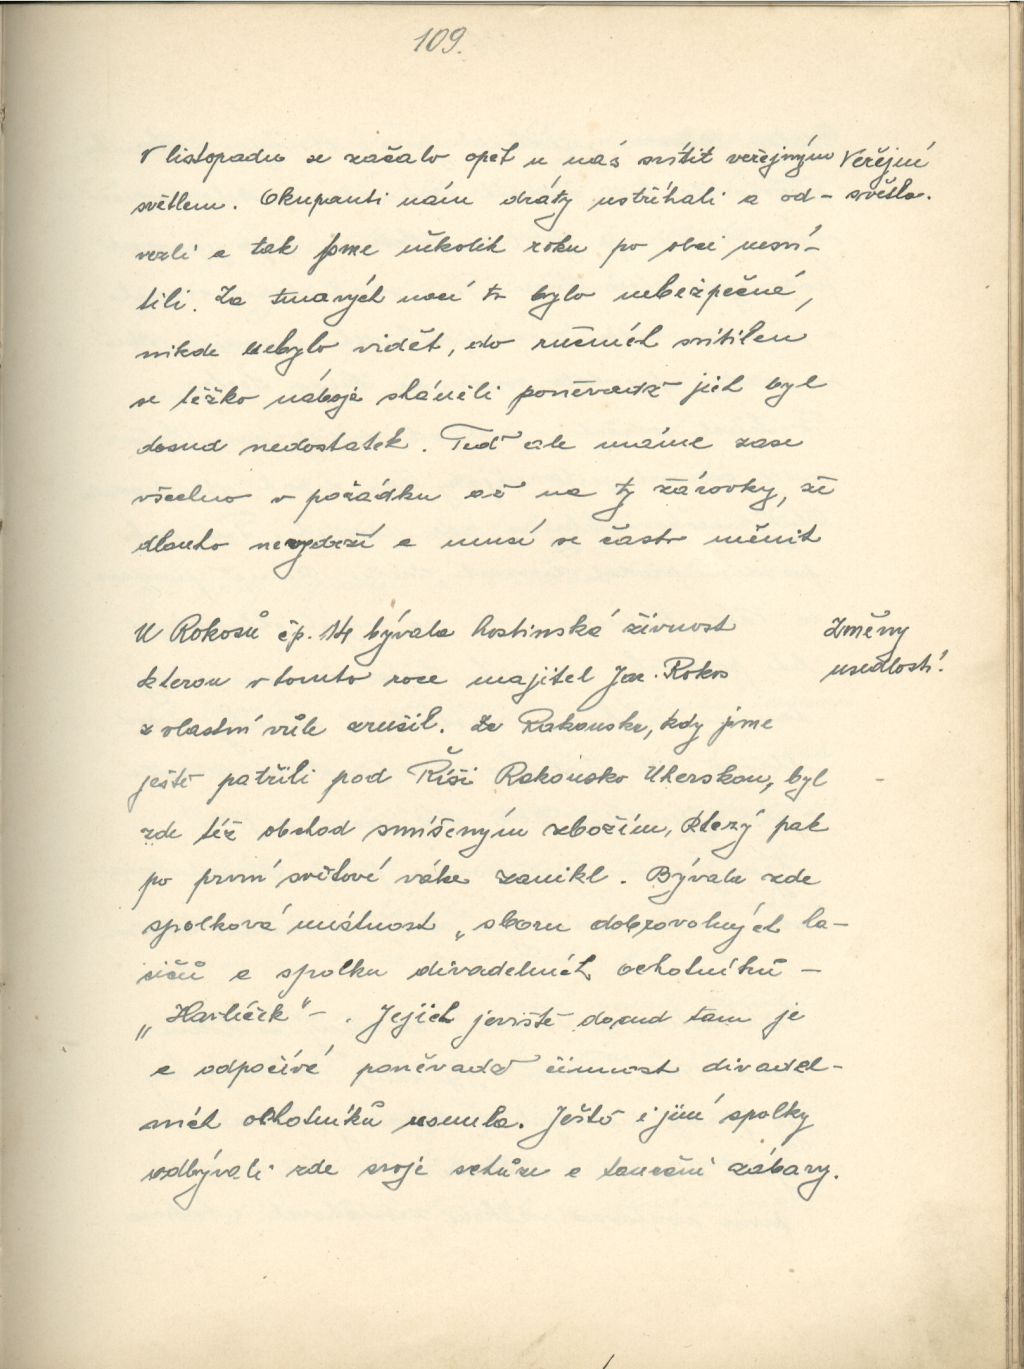 109.
V listopadu se začalo opět u nás svítit veřejným
Veřejné
světlem. Okupanti nám dráty ustříhali a od-
světlo.
vezli a tak jsme několik roku po obci nesví-
tili. Za tmavých nocí to bylo nebezpečné,
nikde nebylo vidět, do ručních svítilen
se těžko náboje sháněli poněvadž jich byl
dosud nedostatek. Teď ale máme zase
všechno v pořádku až na ty žárovky, že
dlouho nevydrží a musí se často měnit
U Rokosů čp. 14 bývala hostinská živnost
Změny
kterou v tomto roce majitel Jar. Rokos
usedlostí.
z vlastní vůle zrušil. Za Rakouska, kdy jsme
ještě patřili pod Říši Rakousko Uherskou, byl
zde též obchod smíšeným zbožím, který pak
po první světové válce zanikl. Bývala zde
spolková místnost „sboru dobrovolných ha-
sičů a spolku divadelních ochotníků –
„Havlíček“ – . Jejich jeviště dosud tam je
a odpočívá poněvadž činnost divadel-
ních ochotníků usnula. Ještě i jiné spolky
odbývali zde svoje schůze a taneční zábavy.